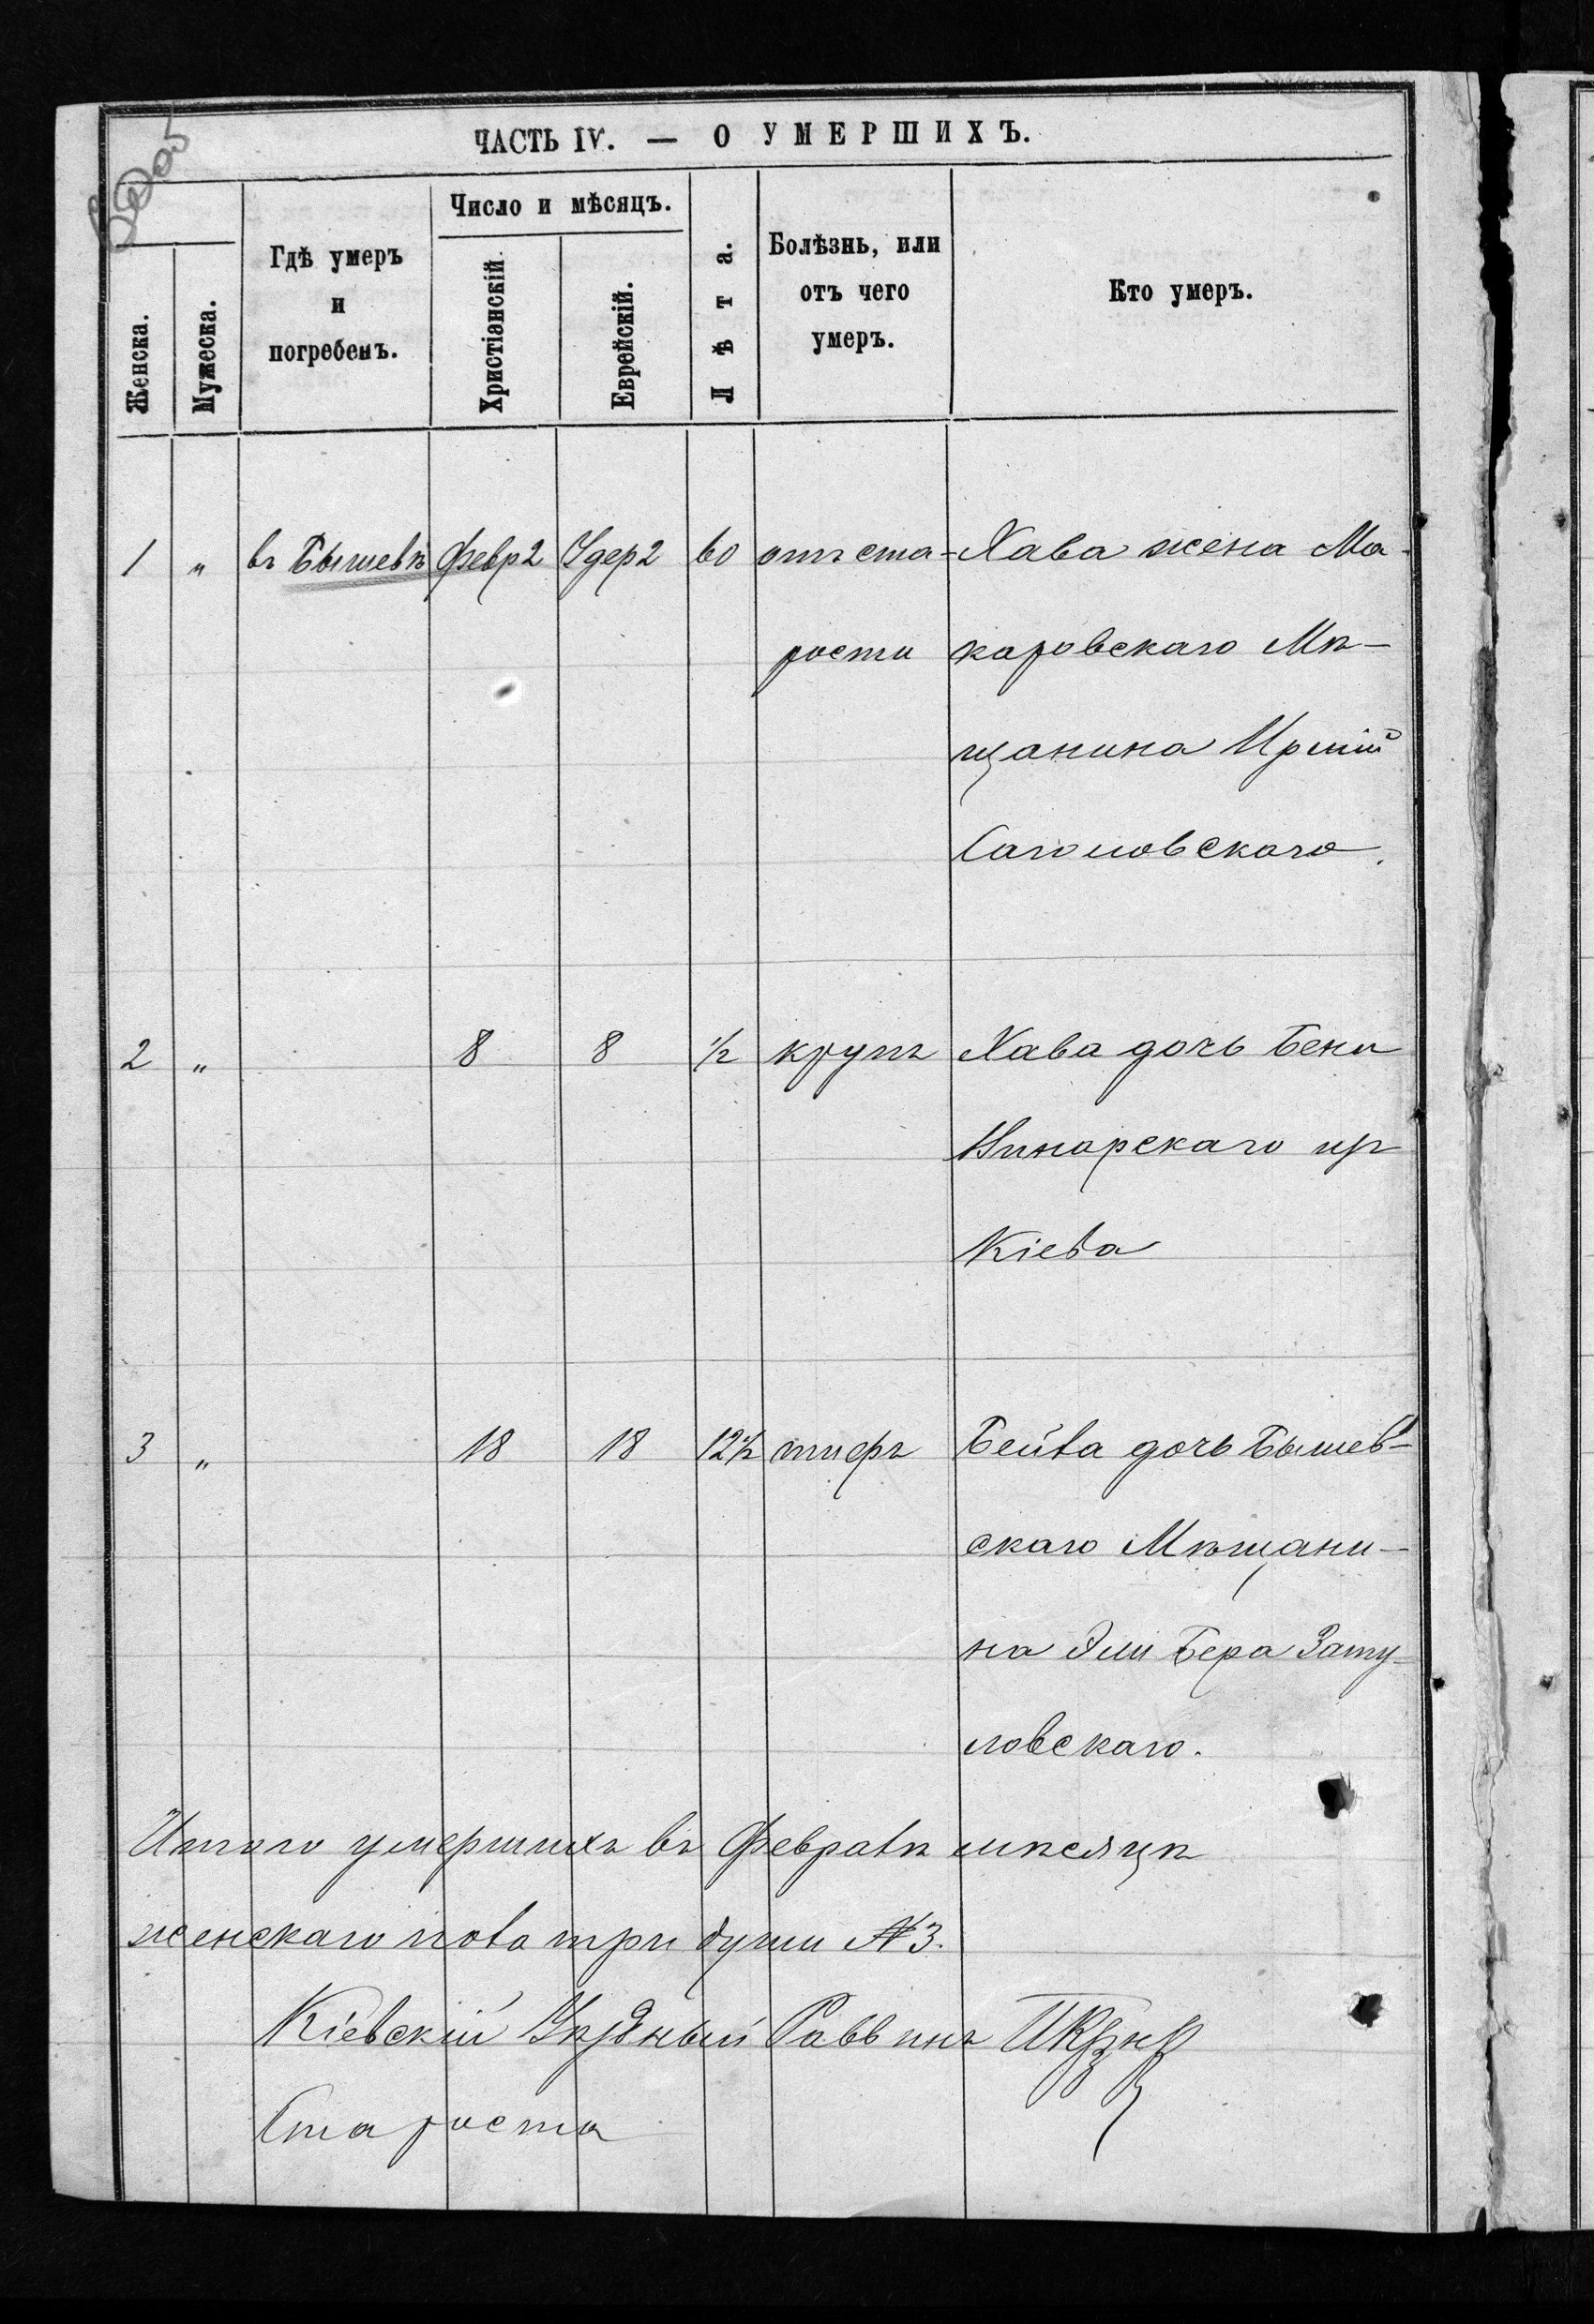 ЧАСТЬ IV. — О УМЕРШИХЪ.
Женска.
Мужеска.
Гдѣ умеръ
и
погребенъ.
Число и мѣсяцъ.
Христіанскій.
Еврейскій.
Лѣта.
Болѣзнь, или
отъ чего
умеръ.
Кто умеръ.
1 „ въ Бышевѣ Февр 2 Удер 2 60 отъ ста- Хава жена Ма-
рости каровскаго Мѣ-
щанина
2 „ 8 8 1/2 крупъ Хава дочь Бени
Кіева
3 „ 18 18 12 1/2 тифъ Бейла дочь Бышев-
скаго Мѣщани-
на Эли Бера Зату-
ловскаго.
Итого умершихъ въ Февралѣ мѣсяцѣ
женскаго пола три души № 3.
Кіевскій Уѣздный Раввинъ
Староста